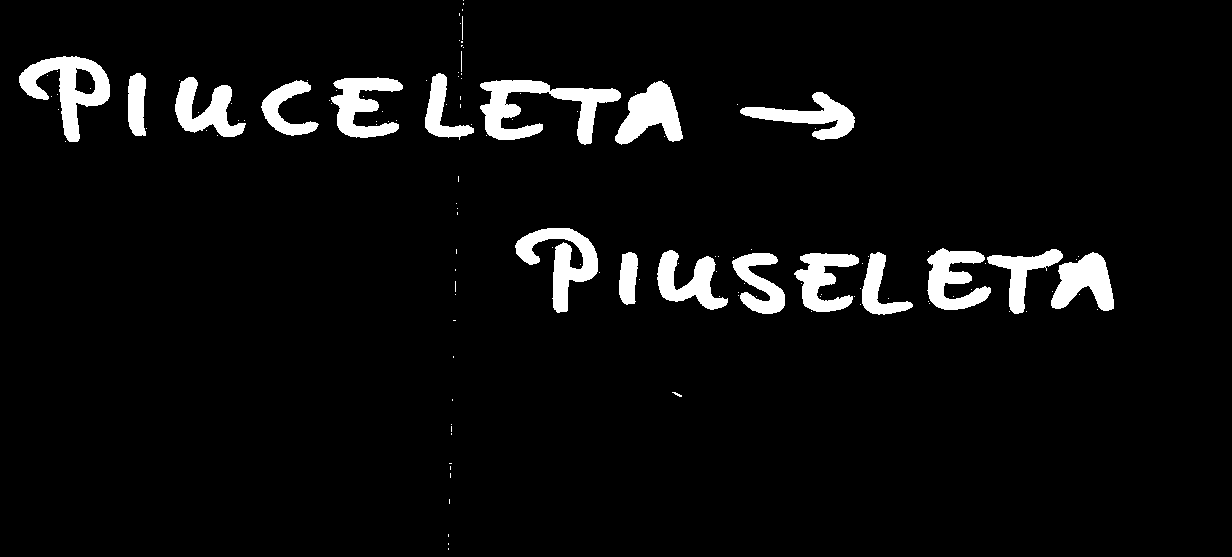 PIUCELETA →
PIUSELETA